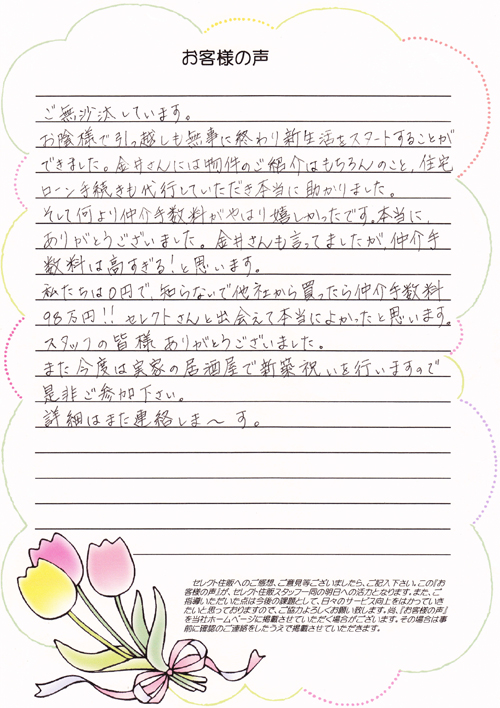 お客様の声
ご無沙汰しています。
お陰様で引っ越しも無事に終わり新生活をスタートすることが
できました。金井さんには物件のご紹介はもちろんのこと、住宅
ローン手続きも代行していただき本当に助かりました。
そして何より仲介手数料がやはり嬉しかったです。本当に、
ありがとうございました。金井さんも言ってましたが、仲介手
数料は高すぎる!と思います。
私たちは0円で、知らないで他社から買ったら仲介手数料
98万円!!セレクトさんと出会えて本当によかったと思います。
スタッフの皆様ありがとうございました。
また今度は実家の居酒屋で新築祝いを行いますので
是非ご参加下さい。
詳細はまた連絡しま〜す。
セレクト住販へのご感想、ご意見等ございましたら、ご記入下さい。この『お
客様の声』が、セレクト住販スタッフ一同の明日への活力となります。また、ご
指導いただいた点は今後の課題として、日々のサービス向上をはかっていき
たいと思っておりますので、ご協力よろしくお願い致します。尚、『お客様の声』
を当社ホームページに掲載させていただく場合がございます。その場合は事
前に確認のご連絡をしたうえで掲載させていただきます。